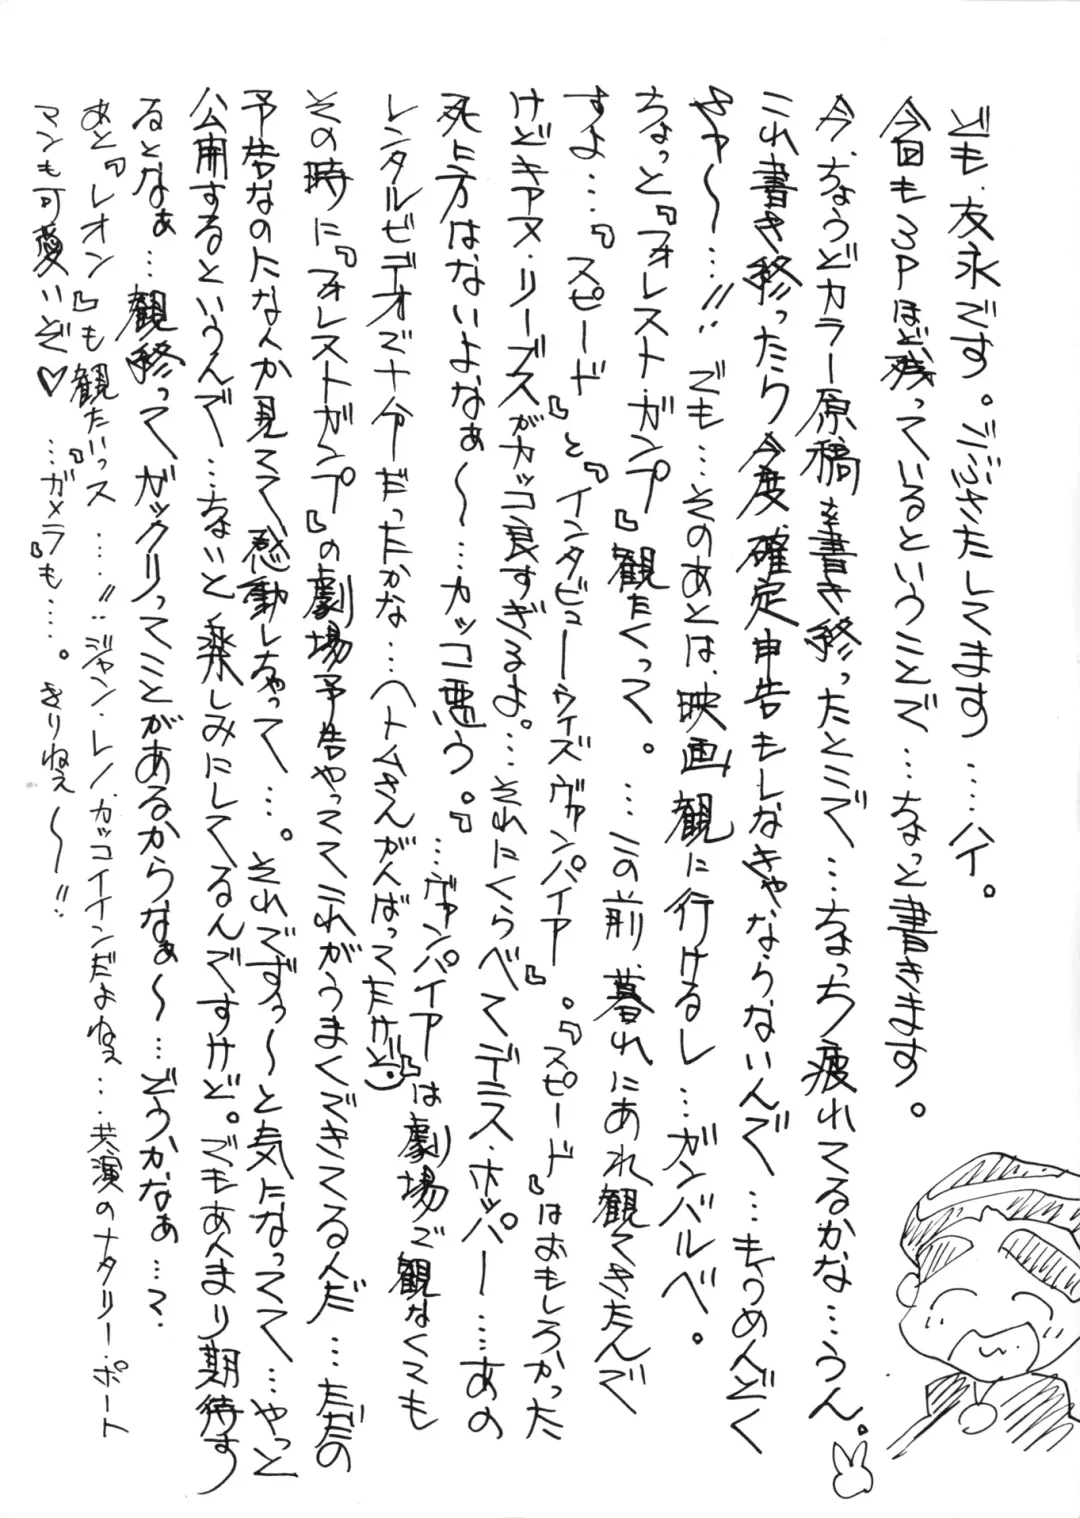 ども、友永です。ごぶさたしてます…ハイ。
今回も3Pほど残っているということで…ちょっと書きます。
今、ちょうどカラー原稿を書き終ったとこで…ちょっち疲れてるかな…うん。
これ書き終ったら今度確定申告もしなきゃならないんで…もうめんどく
さァ〜…!! でも…そのあとは、映画観に行けるし…ガンバルベ。
ちょっと『フォレスト・ガンプ』観たくって。…この前、暮れにあれ観てきたんで
すよ…『スピード』と『インタビューウィズヴァンパイア』。『スピード』はおもしろかった
けどキアヌ・リーブスがカッコ良すぎるよ。…それにくらべてデニス・ホッパー……あの
死に方はないよなぁ〜…カッコ悪う。『…ヴァンパイア』は劇場で観なくても
レンタルビデオで十分だったかな…(トムさんがんばってたけど)
その時に『フォレストガンプ』の劇場予告やっててこれがうまくできてるんだ…ただの
予告なのになんか見てて感動しちゃって…。それでずぅ〜と気になってて…やっと
公開するというんで…ちょいと楽しみにしてるんですけど。でもあんまり期待す
るとなぁ…観終ってガックリってことがあるからなぁ〜…どうかなぁ…て、
あと『レオン』も観たいっス…!! ジャン・レノ、カッコイインだよねェ…共演のナタリー・ポート
マンも可愛いぞ♡ …『ガメラ』も…。きりねェ〜!!